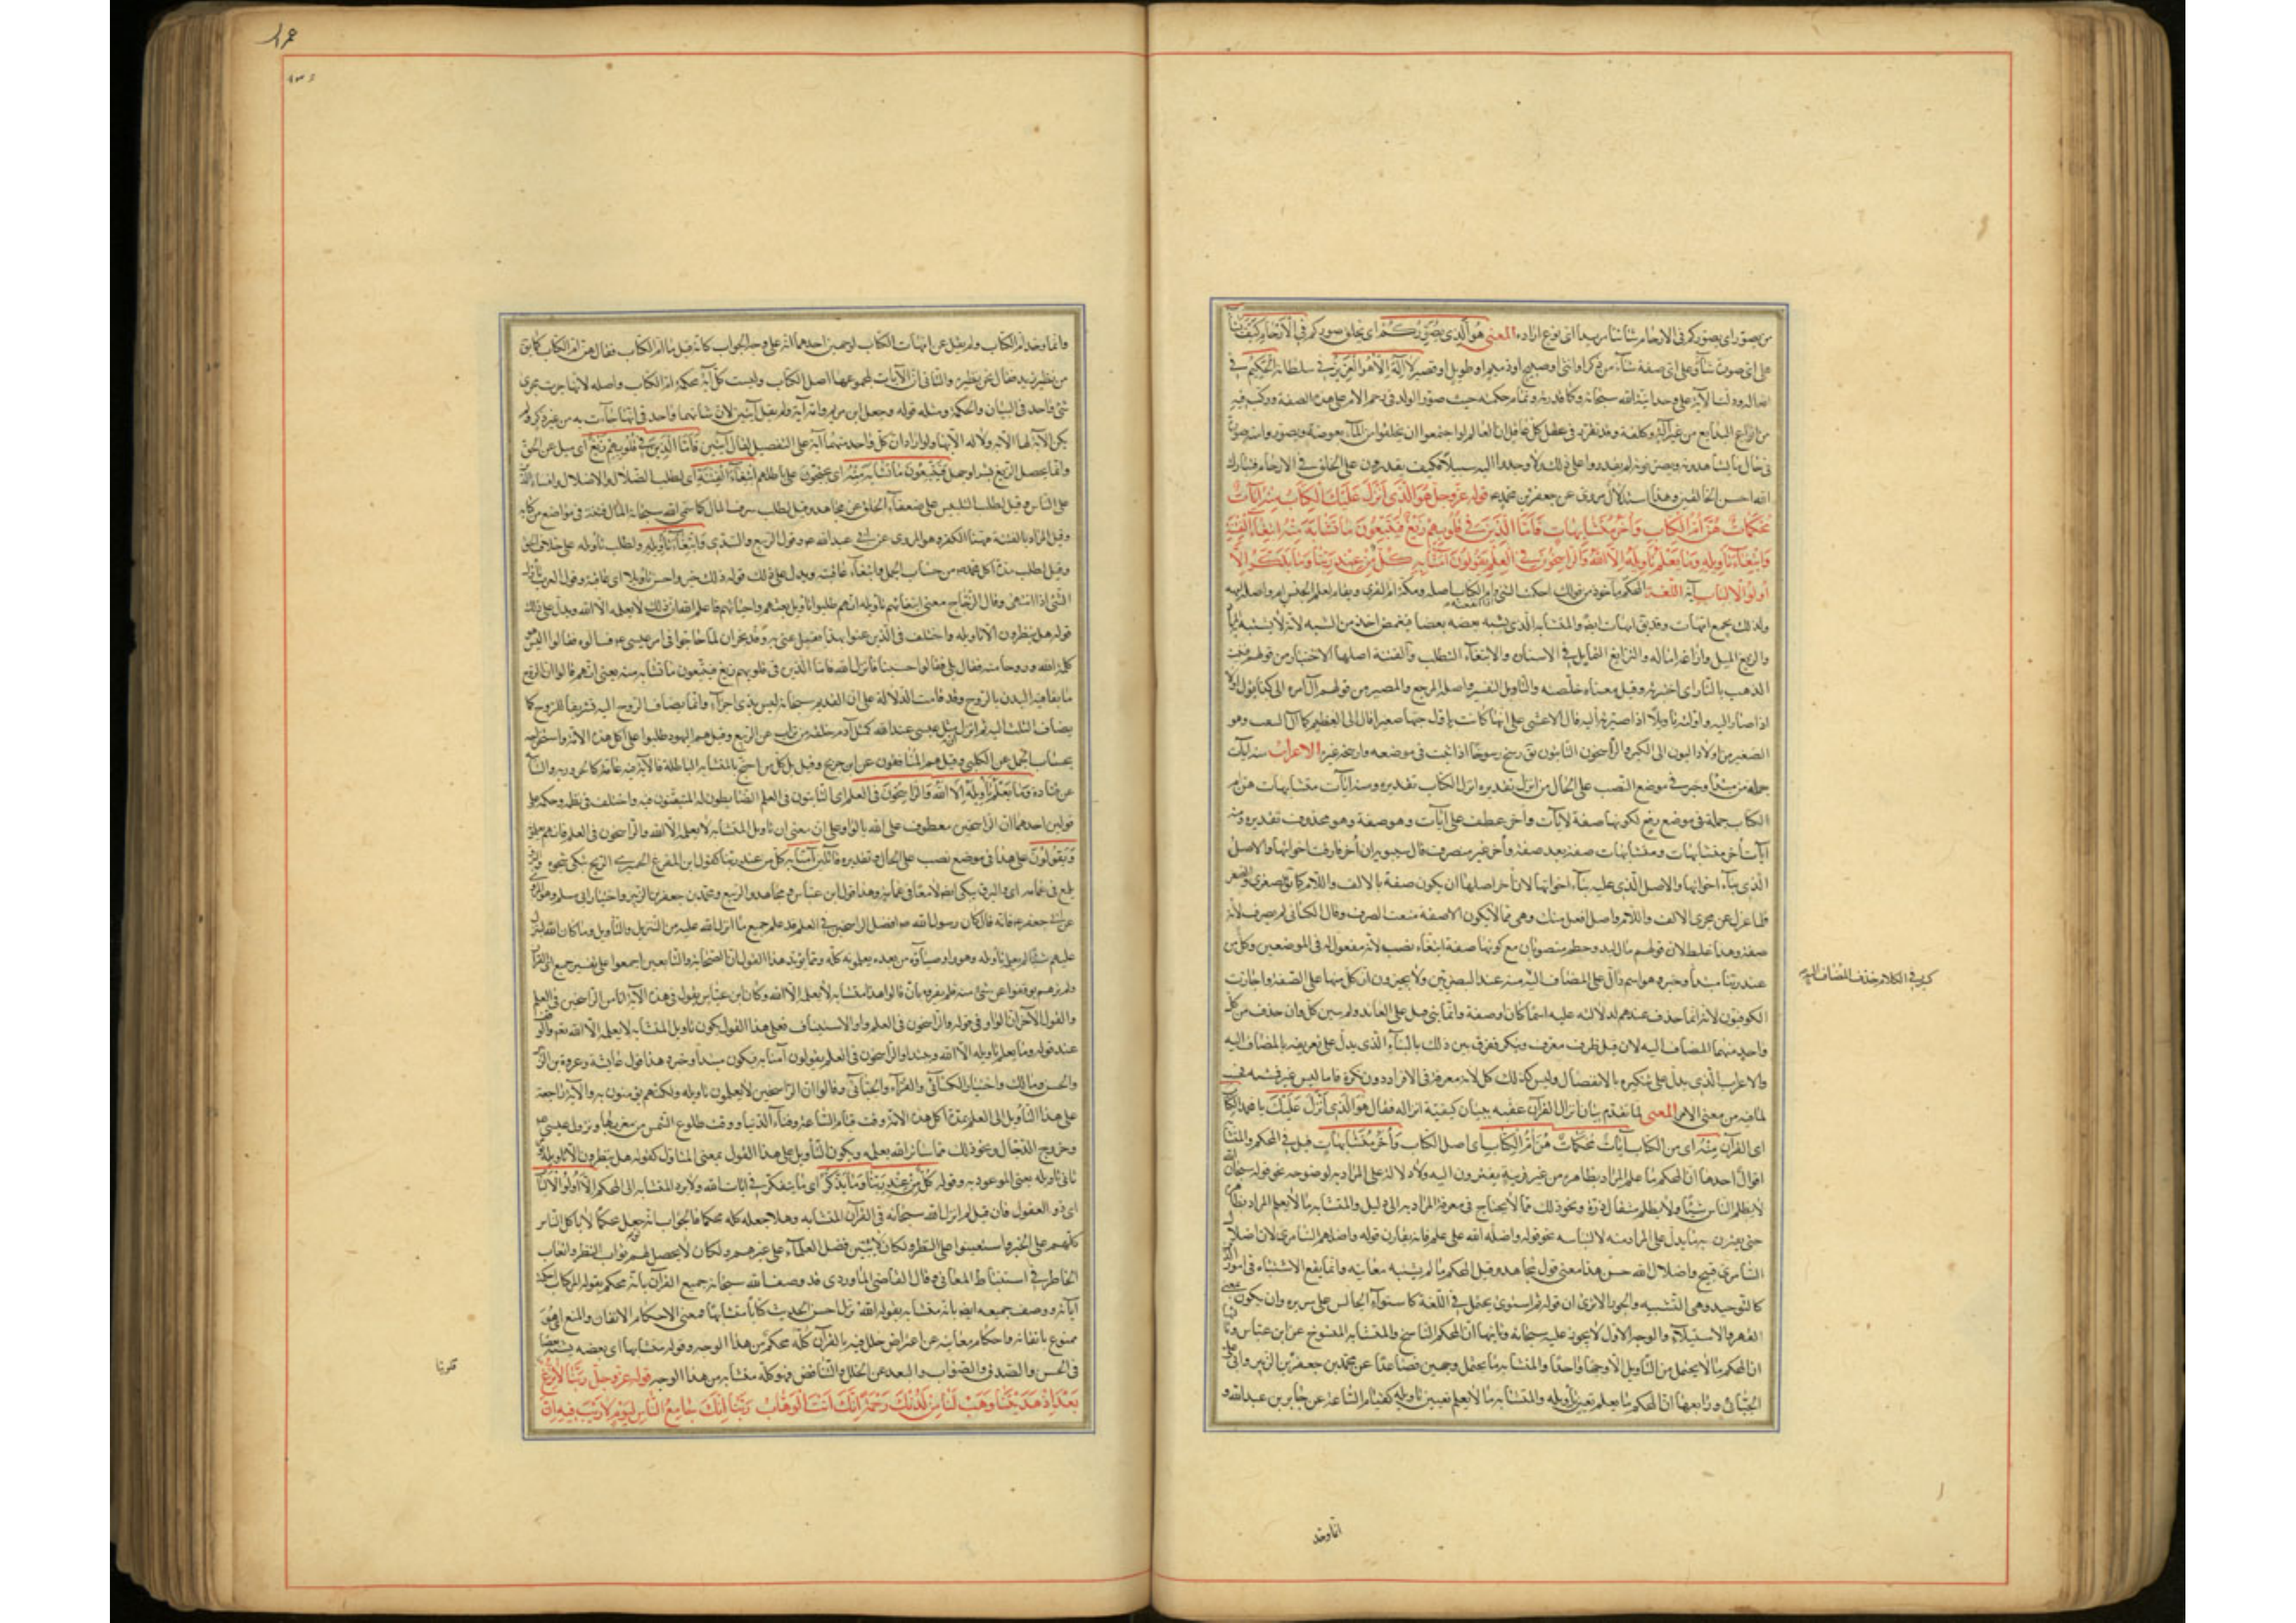 من يصور اى يصوركم فى الارحام المعنى هو الذى يصوركم اى يخلق صوركم فى الارحام كيف يشآء
على اى صورة شآء وعلى اى صفة شآء من ذكر او انثى او صبيح او دميم او طويل او قصير لا اله الا هو العزيز فى سلطانه الحكيم فى
افعاله ودلت الآية على وحدانية الله سبحانه وكمال قدرته وتمام حكمته حيث صور الولد فى رحم الام على هذه الصفة وركب فيه
من انواع البدايع من غير آلة ولا كلفة وقد تقرر فى عقل كل عاقل ان العالم لو اجتمعوا ان يخلقوا من المآء بعوضة ويصوروا منه صورة
فى حال ما يشاهدونه ويعرفونه لم يقدروا على ذلك ولا وجدوا اليه سبيلا فكيف يقدرون على الخلق فى الارحام فتبارك
الله احسن الخالقين وهذا استدلال مروى عن جعفر بن محمد ع قوله عز وجل هو الذى انزل عليك الكتاب منه آيات
محكمات هن ام الكتاب واخر متشابهات فاما الذين فى قلوبهم زيغ فيتبعون ما تشابه منه ابتغآء الفتنة
وابتغآء تأويله وما يعلم تأويله الا الله والراسخون فى العلم يقولون آمنا به كل من عند ربنا وما يذكر الا
اولوا الالباب آية اللغة المحكم مأخوذ من قولك احكمت الشئ وام الكتاب اصله ومكة ام القرى ويقال لعلم الجيش ام واصله امهة
ولذلك يجمع امهات وقد يق امات ايض والمتشابه الذى يشبه بعضه بعضا فيغمض اخذ من الشبه لانه لا يشتبه به المراد
والزيغ الميل وازاغه اماله والتزايغ التمايل فى الاسنان والابتغآء التطلب والفتنة اصلها الاختبار من قولهم فتنت
الذهب بالنار اى اختبرته وقيل معناه خلصته والتأويل التفسير واصله المرجع والمصير من قولهم آل امره الى كذا يؤل اولا
اذا صار اليه واولته تأويلا اذا صيرته اليه قال الاعشى على انها كانت تأول حبها
والراسخون الثابتون يق رسخ رسوخا اذا ثبت فى موضعه وارسخه غيره الاعراب منه آيات
جملة من مبتدأ وخبر فى موضع النصب على الحال من انزل تقديره انزل الكتاب ومنه آيات متشابهات هن ام
الكتاب جملة فى موضع رفع لكونها صفة لآيات واخر عطف على آيات وهو صفة وهو محذوف تقديره ومنه
آيات اخر متشابهات ومتشابهات صفة بعد صفة واخر غير منصرف قال سيبويه ان اخر فارقت اخواتها والاصل
الذى بنآء اخواتها والاصل الذى عليه بنآء اخواتها لان اخر اصلها ان يكون صفة بالالف واللام كما يق الصغرى والصغر
فلما عدل عن مجرى الالف واللام واصل افعل منك وهى مما لا يكون الا صفة منعت الصرف وقال الكسائى لم يصرف لانه
صفة وهذا غلط لان قولهم مال لبد وحطم منصرفان مع كونها صفة ابتغاء نصب لانه مفعول له فى الموضعين وكل من
عند ربنا مبتدأ وخبره وهو اسم دال على المضاف اليه
كثير فى الكلام حذف المضاف اليه
واحد منهما المضاف اليه لان قبل ظرف يعرف وينكر ففرق بين ذلك بالبناء الذى يدل على تعريفه بالمضاف اليه
والاعراب الذى يدل على تنكيره بالانفصال وليس كذلك كل لانه معرفة فى الافراد دون نكرة فاما ليس غير فمشبه
لما فيه من معنى الامر المعنى لما تقدم بيان انزال القرآن عقبه ببيان كيفية انزاله فقال هو الذى انزل عليك يا محمد الكتاب
اى القرآن منه اى من الكتاب آيات محكمات هن ام الكتاب اى اصل الكتاب واخر متشابهات قيل فى المحكم والمتشابه
اقوال احدها ان المحكم ما علم المراد بظاهره من غير قرينة يقترن اليه ولا دلالة على المراد به لوضوحه نحو قوله ان الله
لا يظلم الناس شيئا ولا يظلم مثقال ذرة ونحو ذلك مما لا يحتاج فى معرفة المراد به الى دليل والمتشابه ما لا يعلم المراد بظاهره
حتى يقترن به ما يدل على المراد منه لالتباسه نحو قوله واضله الله على علم فانه يفارق قوله واضلهم السامرى لان اضلال
السامرى قبيح واضلال الله حسن هذا معنى قول مجاهد وقيل المحكم ما لم يشتبه معانيه وانما يقع الاشتباه فى امور الدين
كالتوحيد ونفى التشبيه والجور الا ترى ان قوله ثم استوى يحتمل فى اللغة كاستوآء الجالس على سريره وان يكون بمعنى
القهر والاستيلآء والوجه الاول لا يجوز عليه سبحانه وثانيها ان المحكم الناسخ والمتشابه المنسوخ عن ابن عباس وثالثها
ان المحكم ما لا يحتمل من التأويل الا وجها واحدا والمتشابه ما يحتمل وجهين فصاعدا عن محمد بن جعفر بن الزبير وابى على
الجبائى ورابعها ان المحكم ما يعلم تعيين تأويله والمتشابه ما لا يعلم تعيين تأويله كقيام الساعة عن جابر بن عبدالله و
انما وحد
وانما وحد ام الكتاب ولم يقل هن امهات الكتاب لوجهين احدهما انه على وجه الجواب كانه قيل ما ام الكتاب فقال هن ام الكتاب كما يق
من نظير زيد فقال نحن نظيره والثانى ان الآيات بمجموعها اصل الكتاب وليست كل آية محكمة ام الكتاب واصله لانها جرت مجرى
شئ واحد فى البيان والحكمة ومثله قوله وجعل ابن مريم وامه آية ولم يقل آيتين لان شانهما واحد فى انها جآءت به من غير ذكر ولم
يكن الآية لها الا به ولا له الا بها ولو اراد ان كل واحد منهما آية على التفصيل لقال آيتين فاما الذين فى قلوبهم زيغ اى ميل عن الحق
وانما يحصل الزيغ بشك او جهل فيتبعون ما تشابه منه اى يحتجون على باطلهم ابتغآء الفتنة اى لطلب الضلال والاضلال وافساد الدين
على الناس وقيل لطلب التلبيس على ضعفآء الخلق عن مجاهد وقيل لطلب شرف المال كما سمى الله سبحانه المال فتنة فى مواضع من كتابه
وقيل المراد بالفتنة ههنا الكفر وهو المروى عن ابى عبد الله ع وقول الربيع والسدى وابتغآء تأويله ولطلب تأويله على خلاف الحق
وقيل لطلب مدة اكل محمد ص من حساب الجمل وابتغآء عاقبته ويدل على ذلك قوله ذلك خير واحسن تأويلا اى عاقبة وقول العرب تأول
الشئ اذا انتهى وقال الزجاج معنى ابتغائهم تأويله انهم طلبوا تأويل بعثهم واحيائهم فاعلم الله ان ذلك لا يعلمه الا الله ويدل على ذلك
قوله هل ينظرون الا تأويله واختلف فى الذين عنوا بهذا فقيل عنى به وفد نجران لما حاجوا فى امر عيسى ع وسالوه فقالوا اليس هو
كلمة الله وروحا منه فقال بلى فقالوا حسبنا فانزل الله فاما الذين فى قلوبهم زيغ فيتبعون ما تشابه منه يعنى انهم قالوا ان الروح
ما بقاء فيه البدن بالروح وقد قامت الدلالة على ان القديم سبحانه ليس بذى اجزآء وانما يضاف الروح اليه تشريفا للروح كما
يضاف البيت اليه ثم انزل ان مثل عيسى عند الله كمثل آدم خلقه من تراب عن الربيع وقيل هم اليهود طلبوا علم اكل هذه الامة واستخراجه
بحساب الجمل عن الكلبى وقيل هم المنافقون عن ابن جريج وقيل بل كل من احتج بالمتشابه لباطله فالآية فيه عامة كالحرورية والسبائية
عن قتادة وما يعلم تأويله الا الله والراسخون فى العلم اى الثابتون فى العلم الضابطون له المتقنون فيه واختلف فى نظمه وحكمه على
قولين احدهما ان الراسخين معطوف على الله بالواو على ان معنى ان تأويل المتشابه لا يعلمه الا الله والراسخون فى العلم فانهم يعلمونه
ويقولون على هذا فى موضع نصب على الحال وتقديره قائلين آمنا به كل من عند ربنا كقول ابن المفرغ الحميرى الريح تبكى شجوه والبرق
يلمع فى غمامه اى والبرق يبكى ايضا لامعا فى غمامه وهذا قول ابن عباس ومجاهد والربيع ومحمد بن جعفر بن الزبير واختيار ابى مسلم وهو المروى
عن ابى جعفر ع فانه قال كان رسول الله ص افضل الراسخين فى العلم قد علم جميع ما انزل الله عليه من التنزيل والتأويل وما كان الله لينزل
عليه شيئا لم يعلمه تأويله وهو واوصيآؤه من بعده يعلمونه كله ومما يؤيد هذا القول ان الصحابة والتابعين اجمعوا على تفسير جميع آى القرآن
ولم نرهم توقفوا عن شئ منه فلم يفسروه بان قالوا هذا متشابه لا يعلمه الا الله وكان ابن عباس يقول فى هذه الآية انا من الراسخين فى العلم
والقول الآخر ان الواو فى قوله والراسخون فى العلم واو الاستيناف فعلى هذا القول يكون تأويل المتشابه لا يعلمه الا الله تعم والوقف
عند قوله وما يعلم تأويله الا الله ويبتدا والراسخون فى العلم يقولون آمنا به فيكون مبتدأ وخبره هذا قول عايشة وعروة بن الزبير
والحسن ومالك واختيار الكسائى والفرآء والجبائى وقالوا ان الراسخين لا يعلمون تأويله ولكنهم يؤمنون به والآية راجعة
على هذا التأويل الى العلم بمدة اكل هذه الامة ووقت قيام الساعة وفنآء الدنيا ووقت طلوع الشمس من مغربها ونزول عيسى ع
وخروج الدجال ونحو ذلك مما استأثر الله بعلمه ويكون التأويل على هذا القول بمعنى المتأول كقوله هل ينظرون الا تأويله يوم
يأتى تأويله يعنى الموعود به وقوله كل من عند ربنا وما يذكر اى ما يتفكر فى آيات الله ولا يرد المتشابه الى المحكم الا اولوا الالباب
اى ذو العقول فان قيل لم انزل الله سبحانه فى القرآن المتشابه وهلا جعله كله محكما فالجواب انه لو جعل محكما لاتكل الناس
كلهم على الخبر واستغنوا على النظر ولكان لا يتبين فضل العلمآء على غيرهم ولكان لا يحصل لهم ثواب النظر واتعاب
الخاطر فى استنباط المعانى وقال القاضى الماوردى قد وصف الله سبحانه جميع القرآن بانه محكم بقوله الر كتاب احكمت
آياته ووصف جميعه ايض بانه متشابه بقوله الله نزل احسن الحديث كتابا متشابها فمعنى الاحكام الاتقان والمنع اى هو
ممنوع باتقانه واحكام معانيه عن اعتراض خلل فيه فالقرآن كله محكم من هذا الوجه وقوله متشابها اى بعضه يشبه بعضا
فى الحسن والصدق والصواب والبعد عن الخلل والتناقض فهو كله متشابه من هذا الوجه قوله عز وجل ربنا لا تزغ
قلوبنا
بعد اذ هديتنا وهب لنا من لدنك رحمة انك انت الوهاب ربنا انك جامع الناس ليوم لا ريب فيه ان